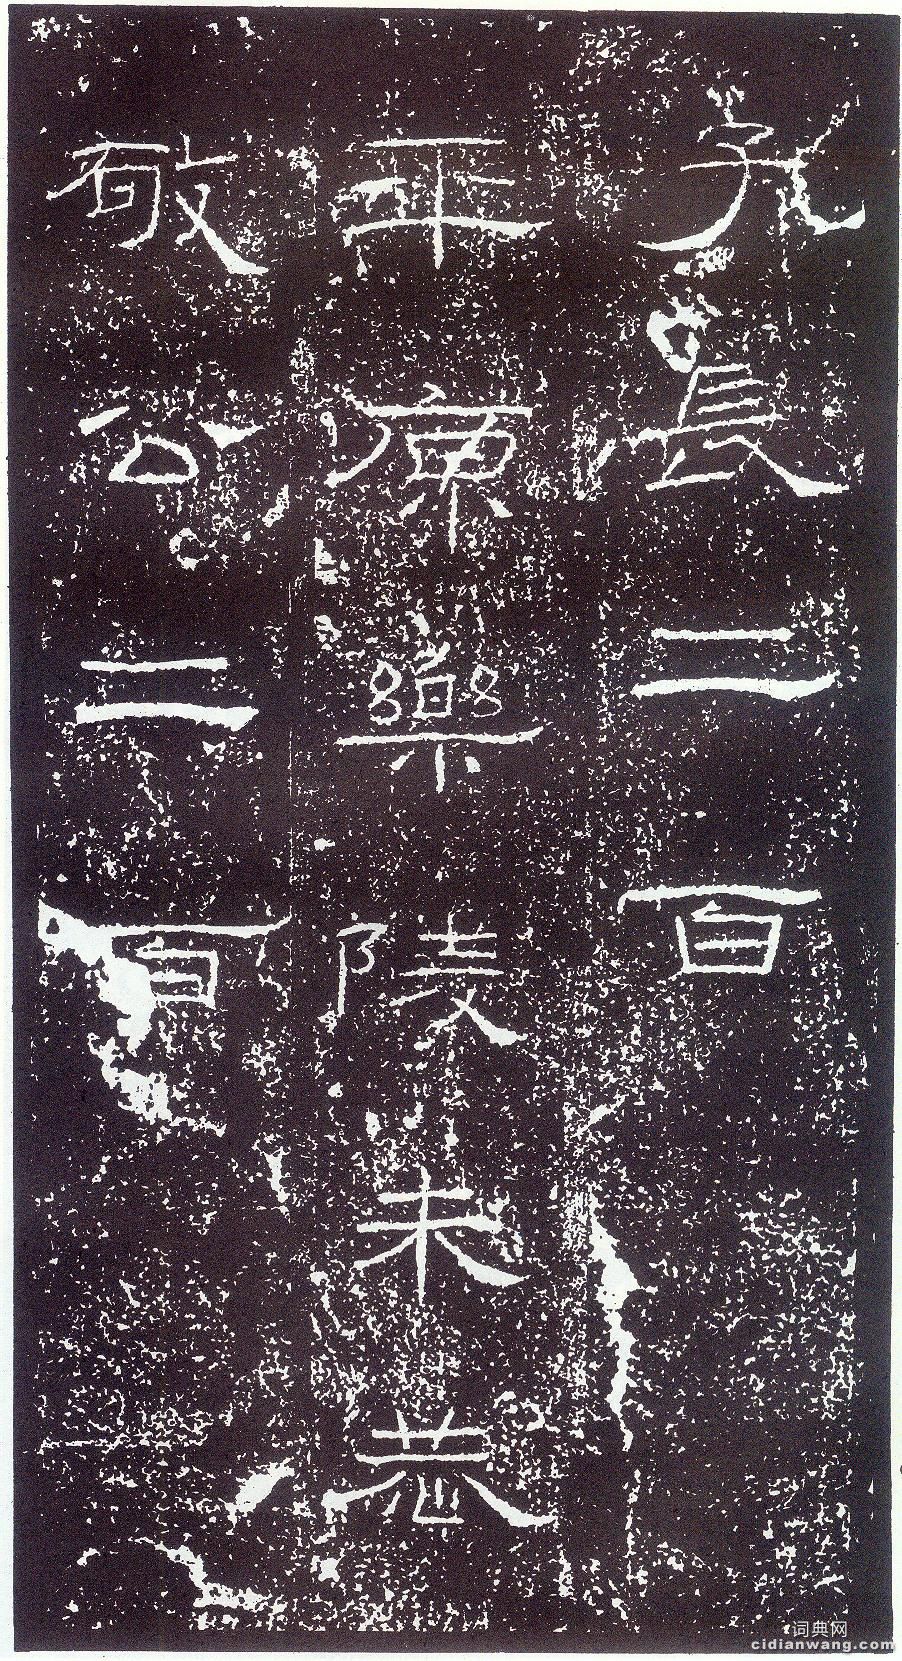 孔長二百
平原樂陵朱恭
敬公二百
词典网
cidianwang.com